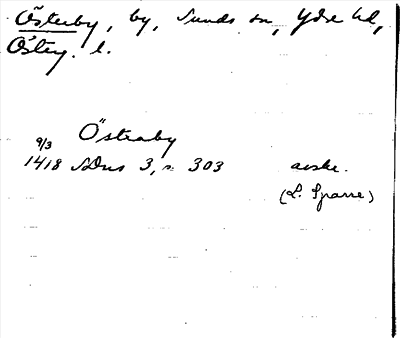 Österby, by, Sunds sn, Ydre hd,
Östg. l.
Österaby
9/3
1418 SDns 3, s. 303 avskr.
(L. Sparre)